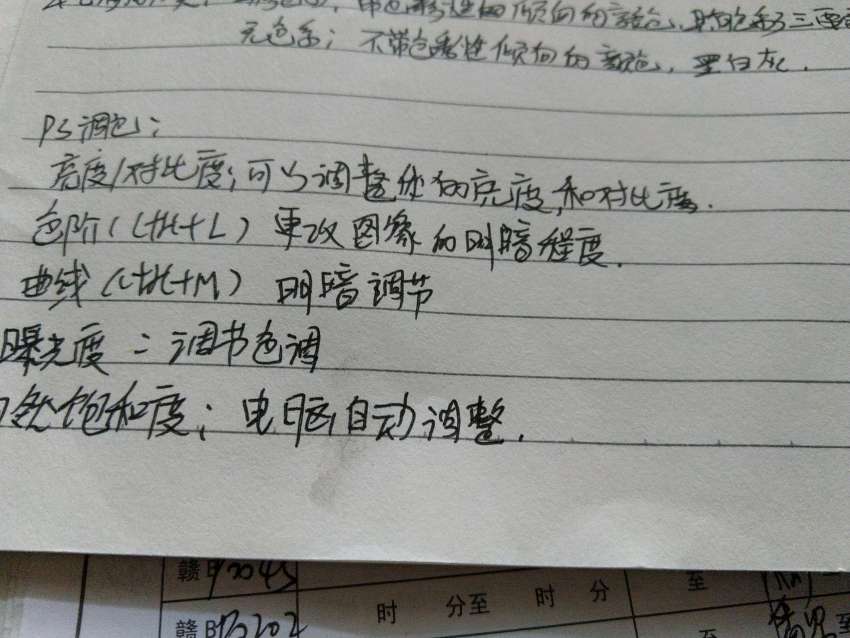 倾向的颜色
无色系；不带色彩倾向的颜色，黑白灰.
PS调色：
亮度/对比度；可以调整你的亮度和对比度.
色阶（Ctrl+L）更改图像的明暗程度.
曲线（Ctrl+M）明暗调节
曝光度：调节色调
然饱和度；电脑自动调整.
赣B
时 分至 时 分 至
赣B 至